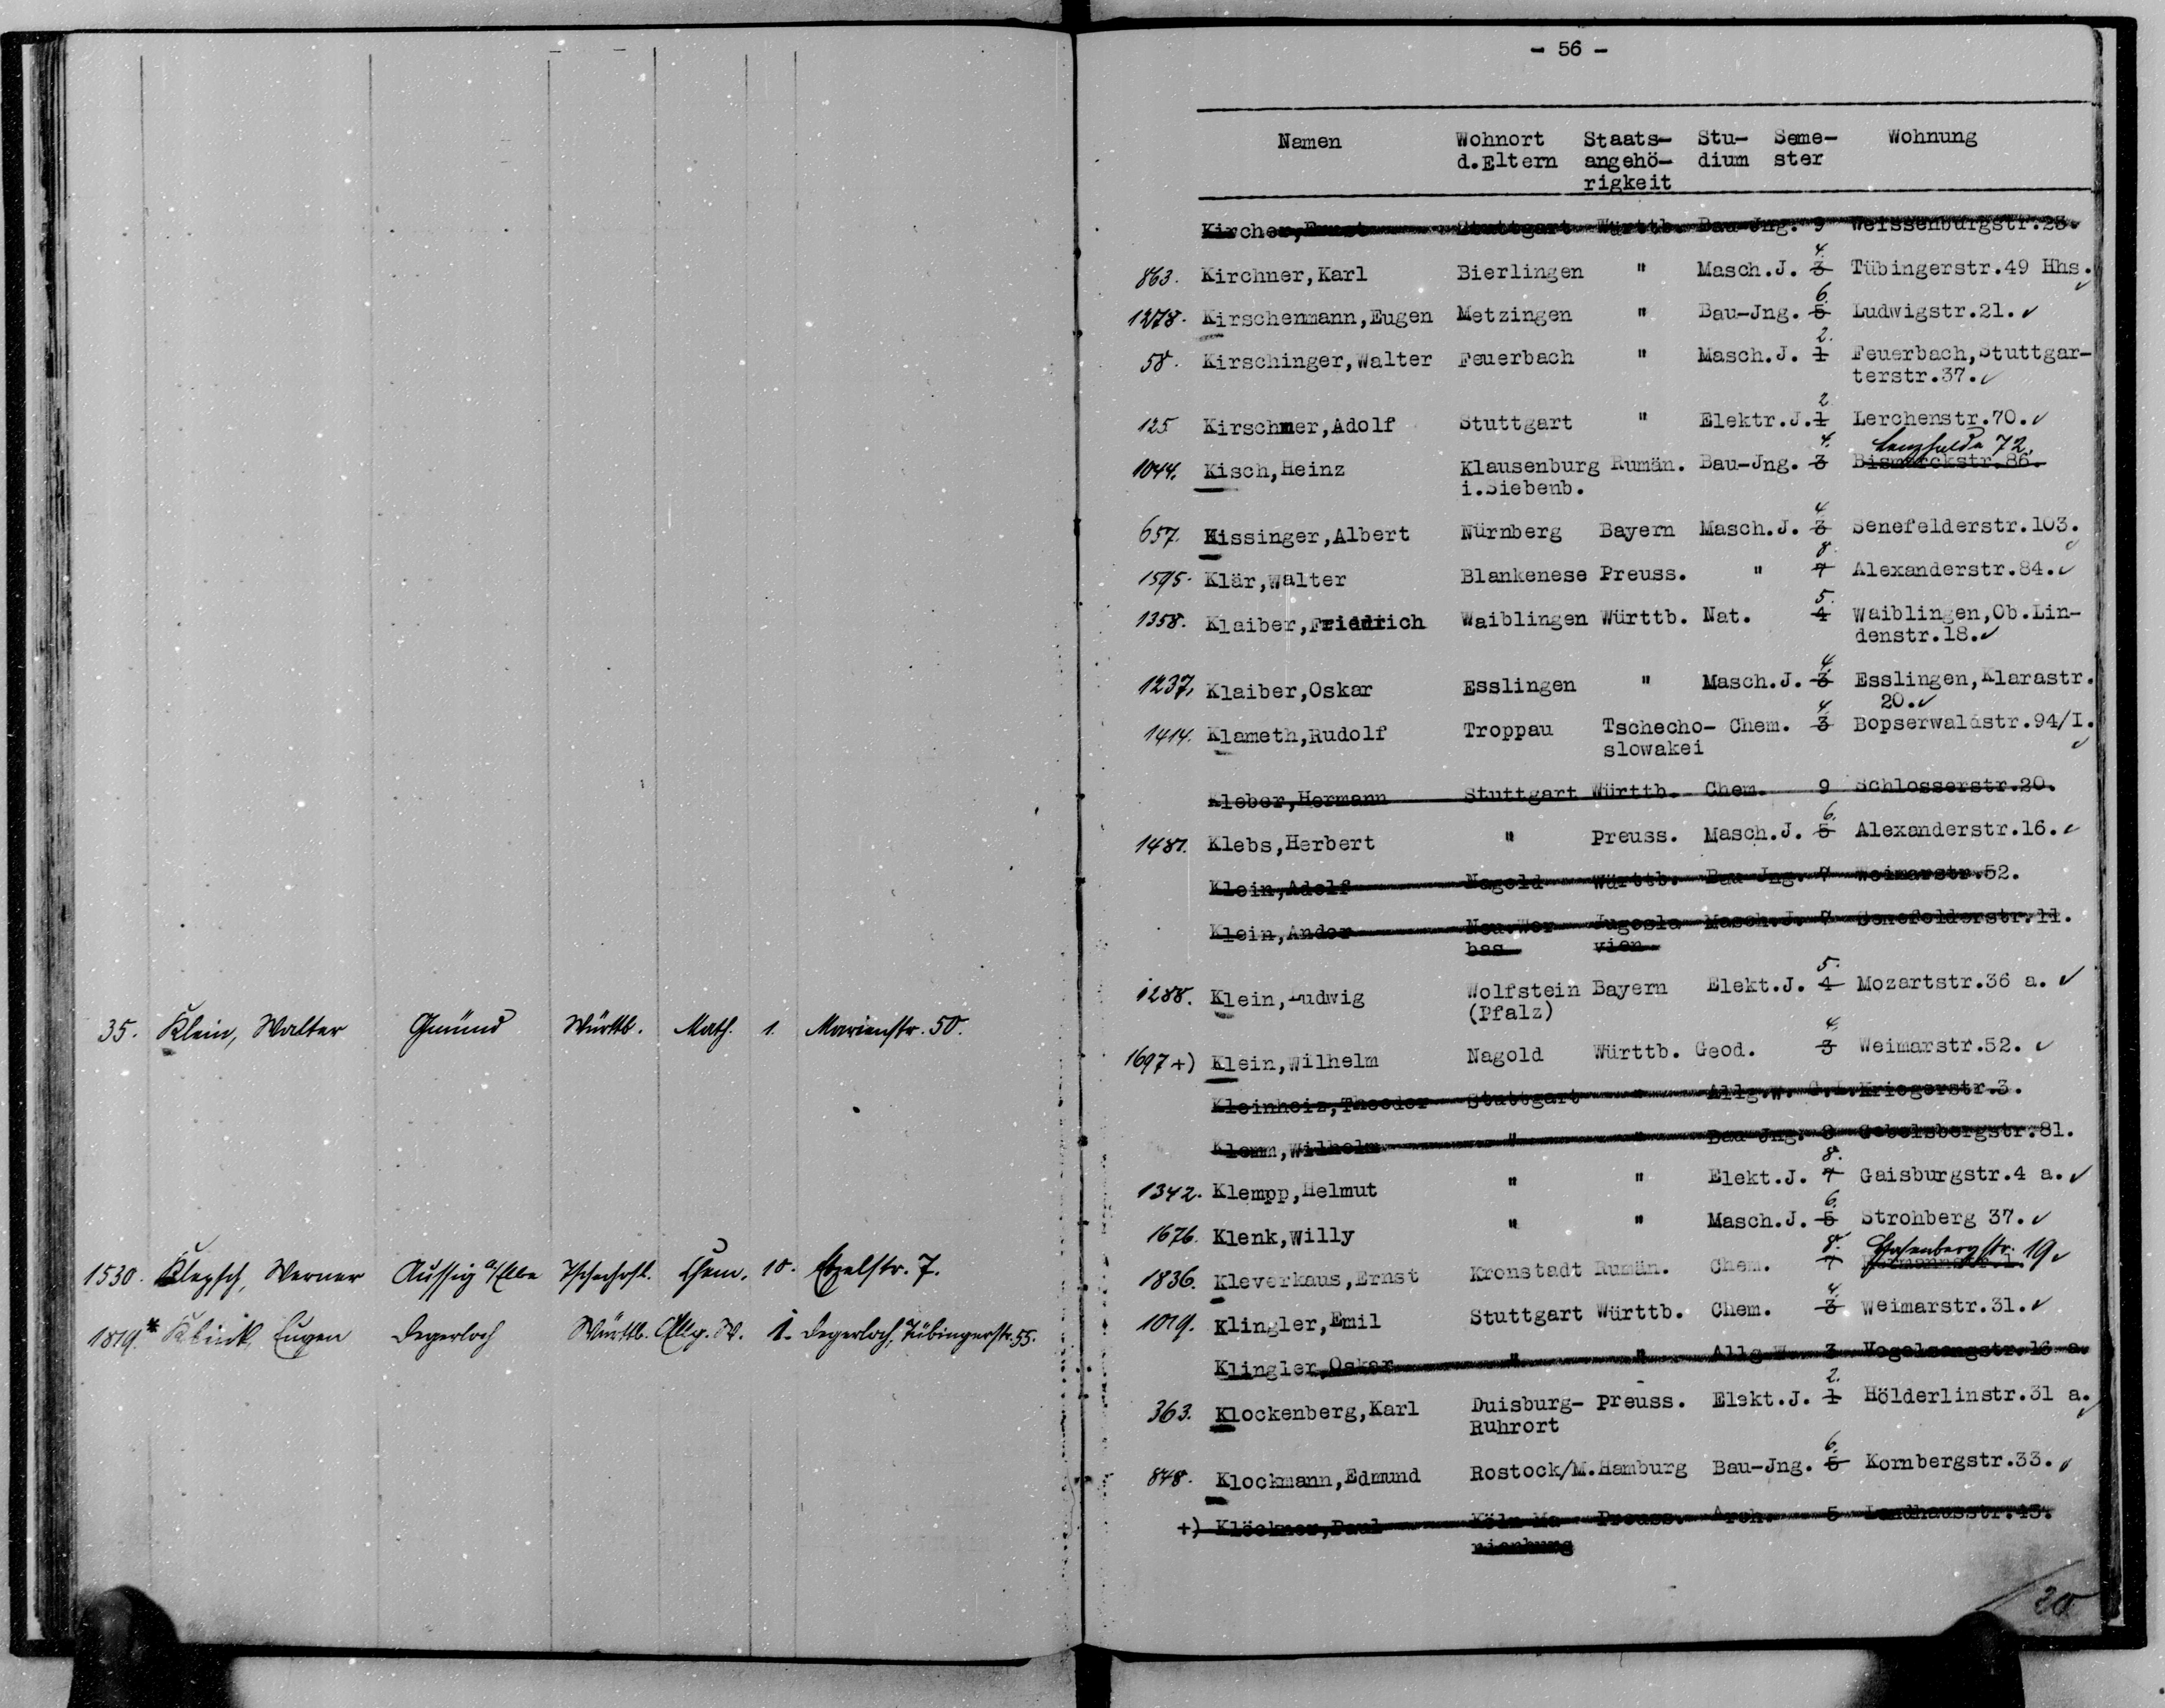 35. Klein, Walter Gmünd Württb. Math. 1. Marienstr. 50.
1530. Klepsch, Werner Aussig a/Elbe Tschechosl. Chem. 10. Etzelstr. 7.
1819.* Eugen Degerloch Württb. Allg. W. 1. Degerloch, Tübingerstr. 55.
- 56 -
Namen Wohnort Staats- Stu- Seme- Wohnung
d.Eltern angehö- dium ster
rigkeit
Kircher,Ernst Stuttgart Württb. Bau-Jng. 9 Weissenburgstr.28.
4.
863. Kirchner,Karl Bierlingen " Masch.J. 3 Tübingerstr.49 Hhs. ✓
6.
1278. Kirschenmann,Eugen Metzingen " Bau-Jng. 5 Ludwigstr.21. ✓
2.
58. Kirschinger,Walter Feuerbach " Masch.J. 1 Feuerbach,Stuttgar-
terstr.37. ✓
2
125 Kirschmer,Adolf Stuttgart " Elektr.J. 1 Lerchenstr.70. ✓
4. 72.
1044. Kisch,Heinz Klausenburg Rumän. Bau-Jng. 3 Bismarckstr.86.
i.Siebenb.
4
657. Kissinger,Albert Nürnberg Bayern Masch.J. 3 Senefelderstr.103. ✓
8.
1595. Klär,Walter Blankenese Preuss. " 7 Alexanderstr.84. ✓
5.
1358. Klaiber,Friedrich Waiblingen Württb. Nat. 4 Waiblingen,Ob.Lin-
denstr.18. ✓
4.
1237. Klaiber,Oskar Esslingen " Masch.J. 3 Esslingen,Klarastr.
20. ✓
4.
1414. Klameth,Rudolf Troppau Tschecho- Chem. 3 Bopserwaldstr.94/I.
slowakei ✓
Kleber,Hermann Stuttgart Württb. Chem. 9 Schlosserstr.20.
6.
1481. Klebs,Herbert " Preuss. Masch.J. 5 Alexanderstr.16. ✓
Klein,Adolf Nagold Württb. Bau-Jng. 7 Weimarstr.52.
Klein,Andor Neu.Wer Jugosla Masch.J. 7 Senefelderstr.11.
bas vien
5.
1288. Klein,Ludwig Wolfstein Bayern Elekt.J. 4 Mozartstr.36 a. ✓
(Pfalz)
4.
1697 +) Klein,Wilhelm Nagold Württb. Geod. 3 Weimarstr.52. ✓
Kleinheiz,Theodor Stuttgart " Allg.W. Kriegerstr.3.
Klemm,Wilhelm " " Bau-Jng. 9 Gebelsbergstr.81.
8.
1342. Klempp,Helmut " " Elekt.J. 7 Gaisburgstr.4 a. ✓
6.
1676. Klenk,Willy " " Masch.J. 5 Strohberg 37. ✓
8. Hasenbergstr. 19 ✓
1836. Kleverkaus,Ernst Kronstadt Rumän. Chem. 7
4.
1019. Klingler,Emil Stuttgart Württb. Chem. 3 Weimarstr.31. ✓
Klingler,Oskar " " Allg.W. 3 Vogelsangstr.16 a.
2.
363. Klockenberg,Karl Duisburg- Preuss. Elekt.J. 1 Hölderlinstr.31 a. ✓
Ruhrort
6.
848. Klockmann,Edmund Rostock/M. Hamburg Bau-Jng. 5 Kornbergstr.33. ✓
+) Klöckner,Paul Köln-Ma Preuss. Arch. 5 Landhausstr.43.
rienburg
/20